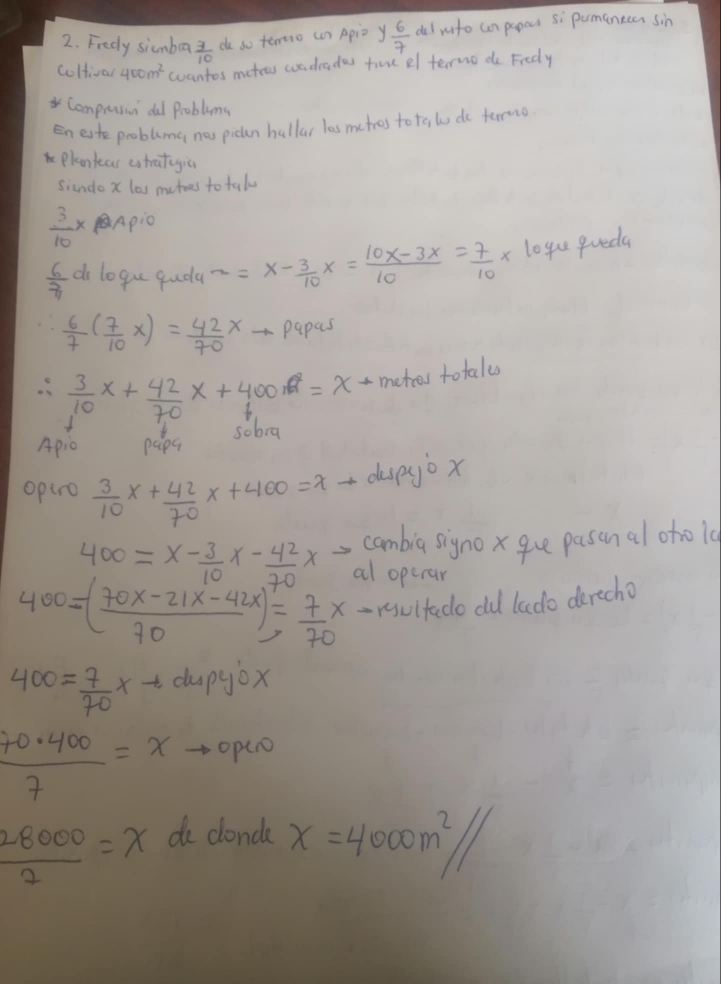 2. Fredy siembra 3/10 de su terreno con Apio y 6/7 del resto con papas si permanecen sin
cultivar 400m² cuantos metros cuadrados tiene el terreno de Fredy
* Comprensión del Problema
En este problema, nos piden hallar los metros totales de terreno.
* Plantear estrategia
siendo x los metros totales
3/10 x Apio
6/7 de lo que queda → = x - 3/10 x = 10x-3x/10 = 7/10 x lo que queda
∴ 6/7 (7/10 x) = 42/70 x → papas
∴ 3/10 x + 42/70 x + 400 = x → metros totales
Apio papa sobra
opero 3/10 x + 42/70 x + 400 = x → despejo x
400 = x - 3/10 x - 42/70 x → cambia signo x que pasan al otro
al operar
400 = (70x-21x-42x/70) = 7/70 x → resultado del lado derecho
400 = 7/70 x → despejo x
70·400/7 = x → opero
28000/7 = x de donde x = 4000m² //